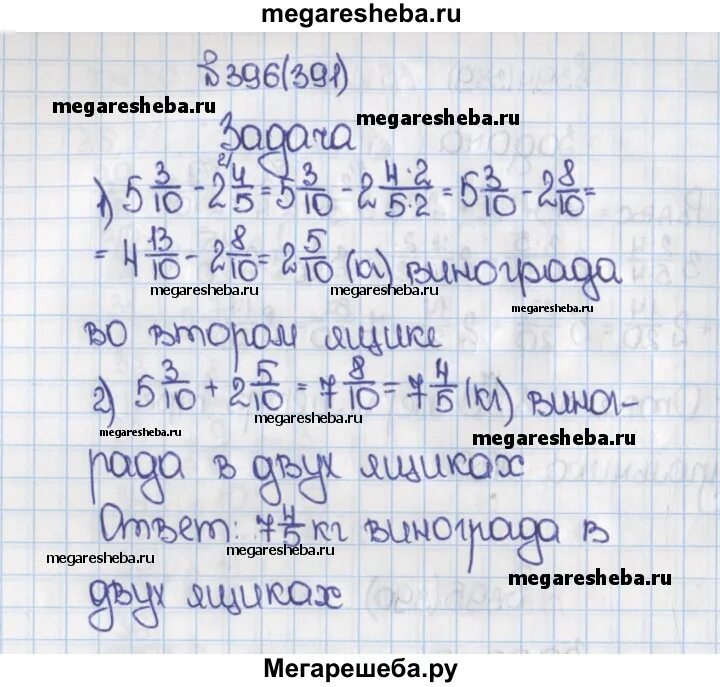 megaresheba.ru
№ 396(391)
megaresheba.ru
megaresheba.ru
Задача
1) 5 3/10 - 2 4/5 = 5 3/10 - 2 4·2/5·2 = 5 3/10 - 2 8/10 =
= 4 13/10 - 2 8/10 = 2 5/10 (кг) винограда
megaresheba.ru
megaresheba.ru
megaresheba.ru
во втором ящике
2) 5 3/10 + 2 5/10 = 7 8/10 = 7 4/5 (кг) вино-
megaresheba.ru
megaresheba.ru
megaresheba.ru
града в двух ящиках
Ответ: 7 4/5 кг винограда в
megaresheba.ru
megaresheba.ru
megaresheba.ru
двух ящиках
Мегарешеба.ру